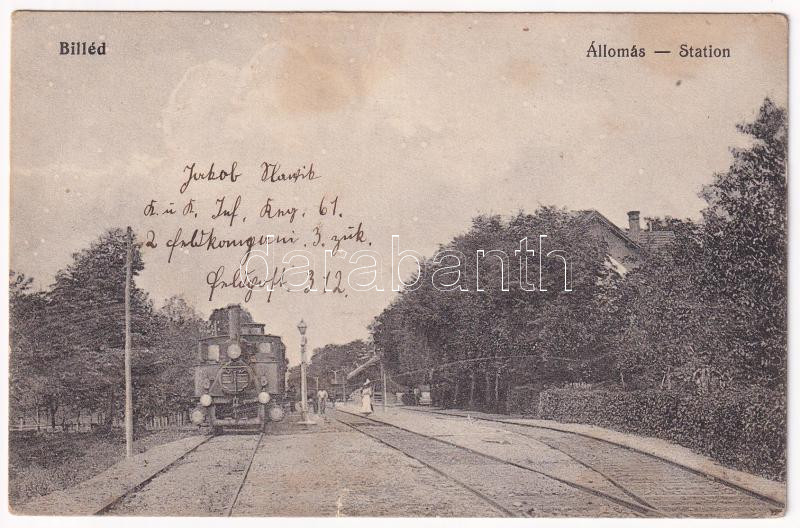 Billéd
Állomás — Station
Jakob Slawik
K. u. K. Inf. Reg. 61.
2 feldkompani. 3. zuk.
feldpost. 312.
darabanth